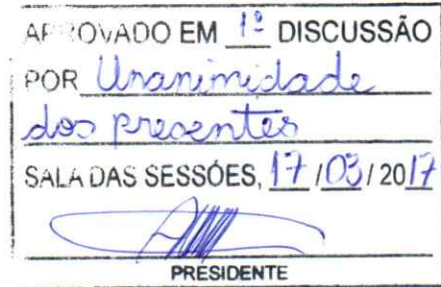 APROVADO EM 1ª DISCUSSÃO
POR Unanimidade
dos presentes
SALA DAS SESSÕES, 17 / 03 / 2017
PRESIDENTE